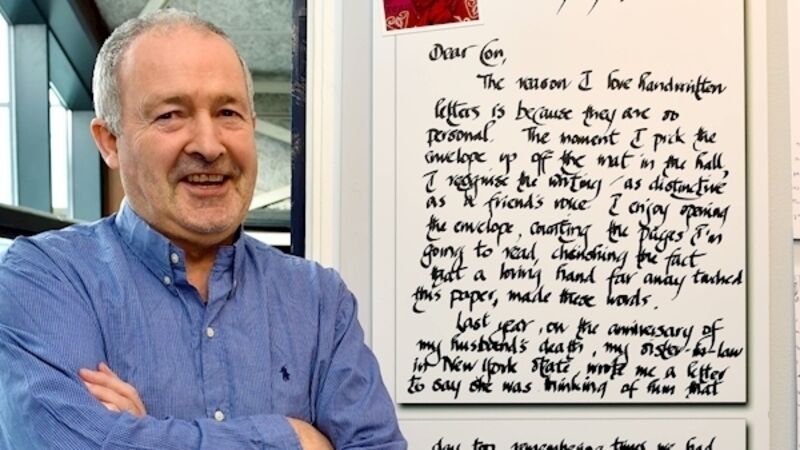 Dear Con,
The reason I love handwritten
letters is because they are so
personal. The moment I pick the
envelope up off the mat in the hall,
I recognise the writing, as distinctive
as a friend's voice. I enjoy opening
the envelope, counting the pages I'm
going to read, cherishing the fact
that a loving hand far away touched
this paper, made these words.
Last year, on the anniversary of
my husband's death, my sister-in-law
in New York State, wrote me a letter
to say she was thinking of him that
day too, remembering times we had